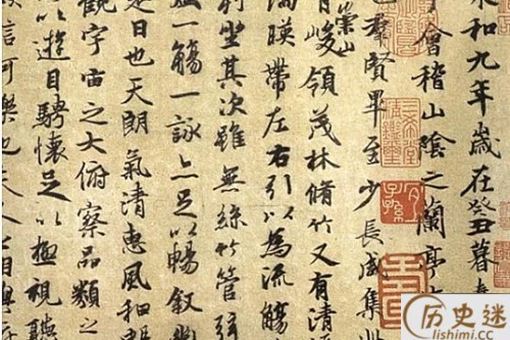 和九年歲在癸丑暮春
會稽山陰之蘭亭
羣賢畢至少長咸集此
有崇山峻領茂林脩竹又有清
湍暎帶左右引以為流觴
列坐其次雖無絲竹管弦
一觴一詠亦足以暢叙幽
是日也天朗氣清惠風和暢
觀宇宙之大俯察品類之
以遊目騁懷足以極視聽
信可樂也夫人之相與
历史迷
lishimi.cc